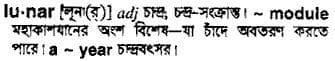 lu·nar [লূনা(র্)] adj চান্দ্র, চন্দ্র-সংক্রান্ত। ~ module
মহাকাশযানের অংশ বিশেষ—যা চাঁদে অবতরণ করতে
পারে। a ~ year চান্দ্রবৎসর।